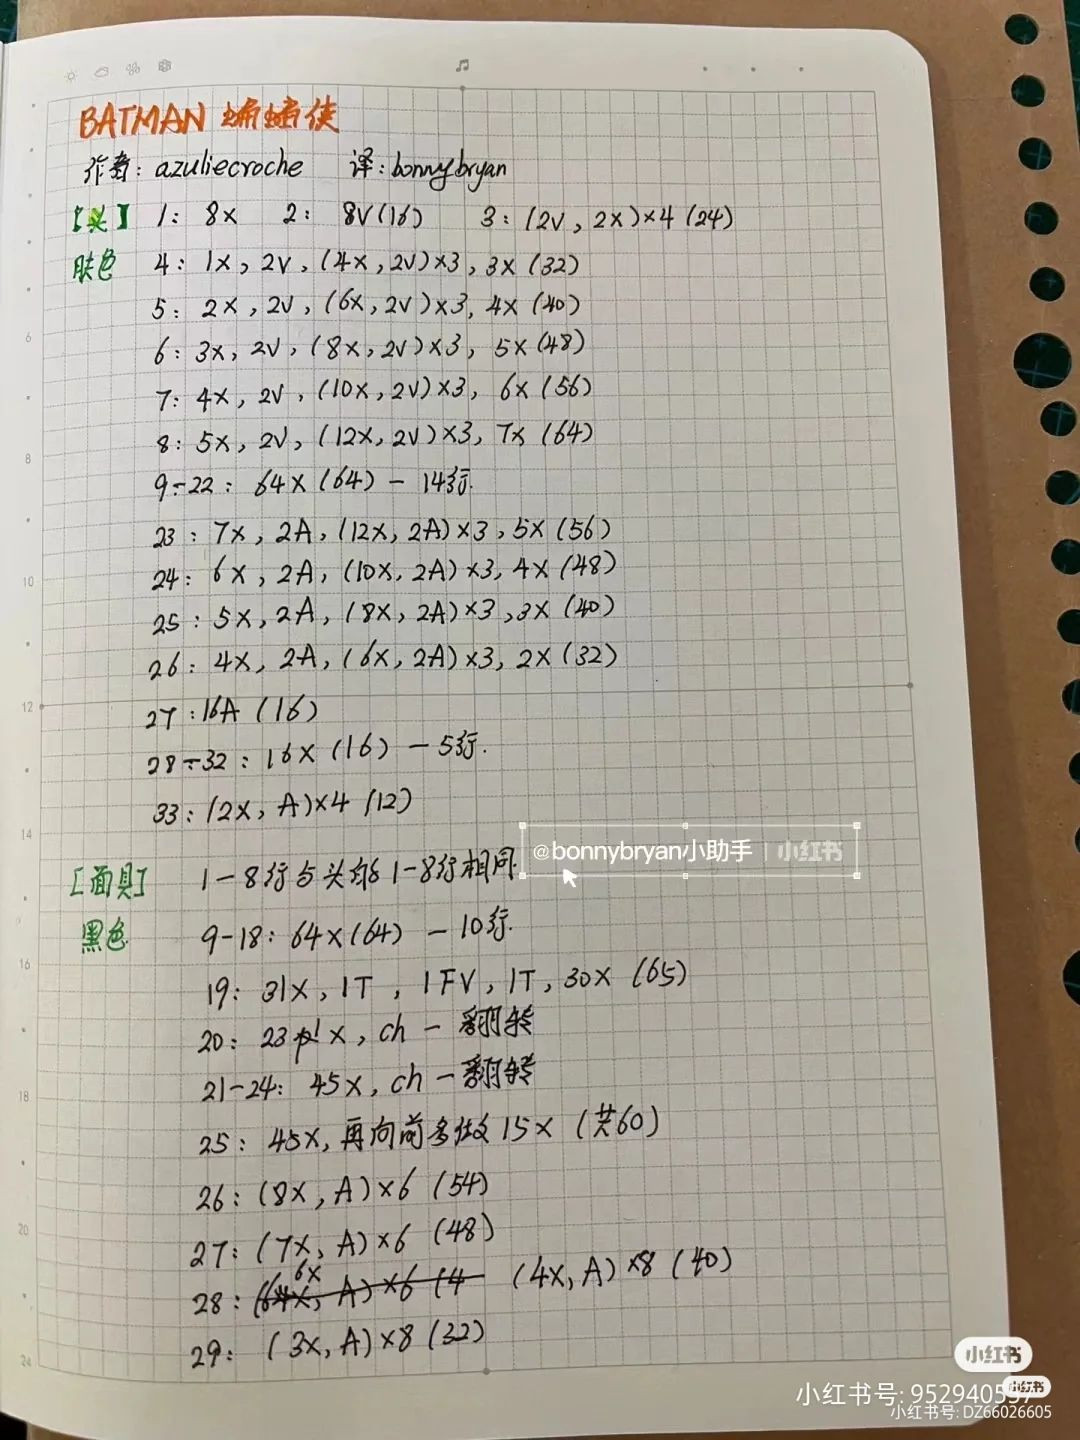 BATMAN 蝙蝠侠
作者: azuliecroche 译: bonnybryan
【头】 1: 8X 2: 8V(16) 3: (2V, 2X)×4 (24)
肤色 4: 1X, 2V, (4X, 2V)×3, 3X (32)
5: 2X, 2V, (6X, 2V)×3, 4X (40)
6: 3X, 2V, (8X, 2V)×3, 5X (48)
7: 4X, 2V, (10X, 2V)×3, 6X (56)
8: 5X, 2V, (12X, 2V)×3, 7X (64)
9-22: 64X (64) - 14行.
23: 7X, 2A, (12X, 2A)×3, 5X (56)
24: 6X, 2A, (10X, 2A)×3, 4X (48)
25: 5X, 2A, (8X, 2A)×3, 3X (40)
26: 4X, 2A, (6X, 2A)×3, 2X (32)
27: 16A (16)
28-32: 16X (16) - 5行.
33: (2X, A)×4 (12)
@bonnybryan小助手 | 小红书
[面具] 1-8行与头部1-8行相同.
黑色 9-18: 64X(64) - 10行.
19: 31X, 1T, 1FV, 1T, 30X (65)
20: 23 X, ch - 翻转
21-24: 45X, ch - 翻转
25: 45X, 再向前多做 15X (共60)
26: (8X, A)×6 (54)
27: (7X, A)×6 (48)
28: (4X, A)×8 (40)
29: (3X, A)×8 (32)
小红书
小红书号: 952940557
小红书
小红书号: DZ66026605
6
8
10
12
14
16
18
20
24